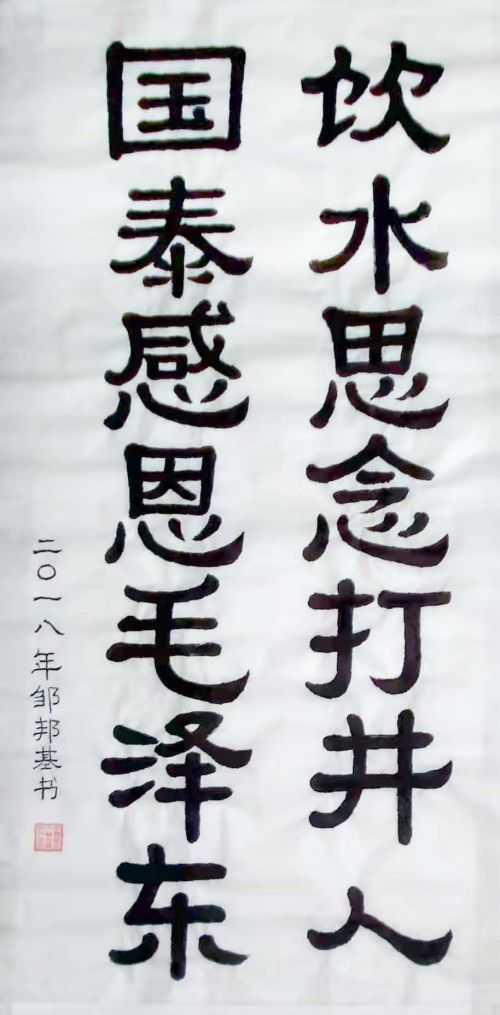 饮水思念打井人
国泰感恩毛泽东
二〇一八年邹邦基书